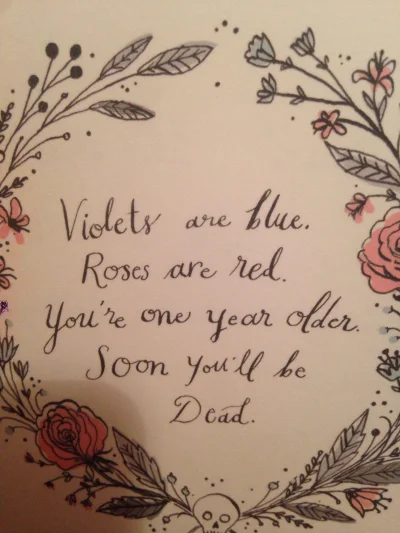 Violets are blue.
Roses are red.
You're one year older.
Soon you'll be
Dead.